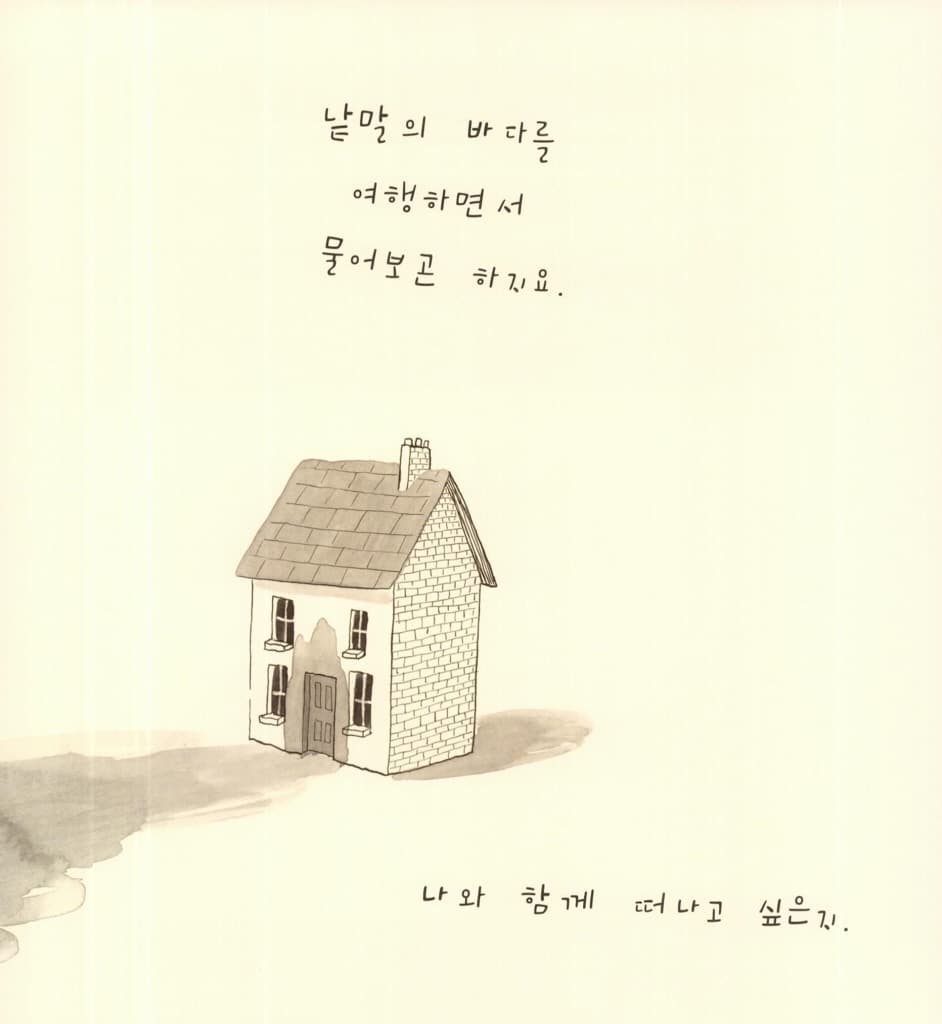 낱말의 바다를
여행하면서
물어보곤 하지요.
나와 함께 떠나고 싶은지.